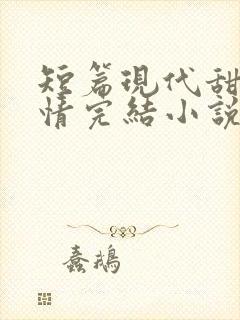 短篇現代甜
情完結小說
蠢鵝